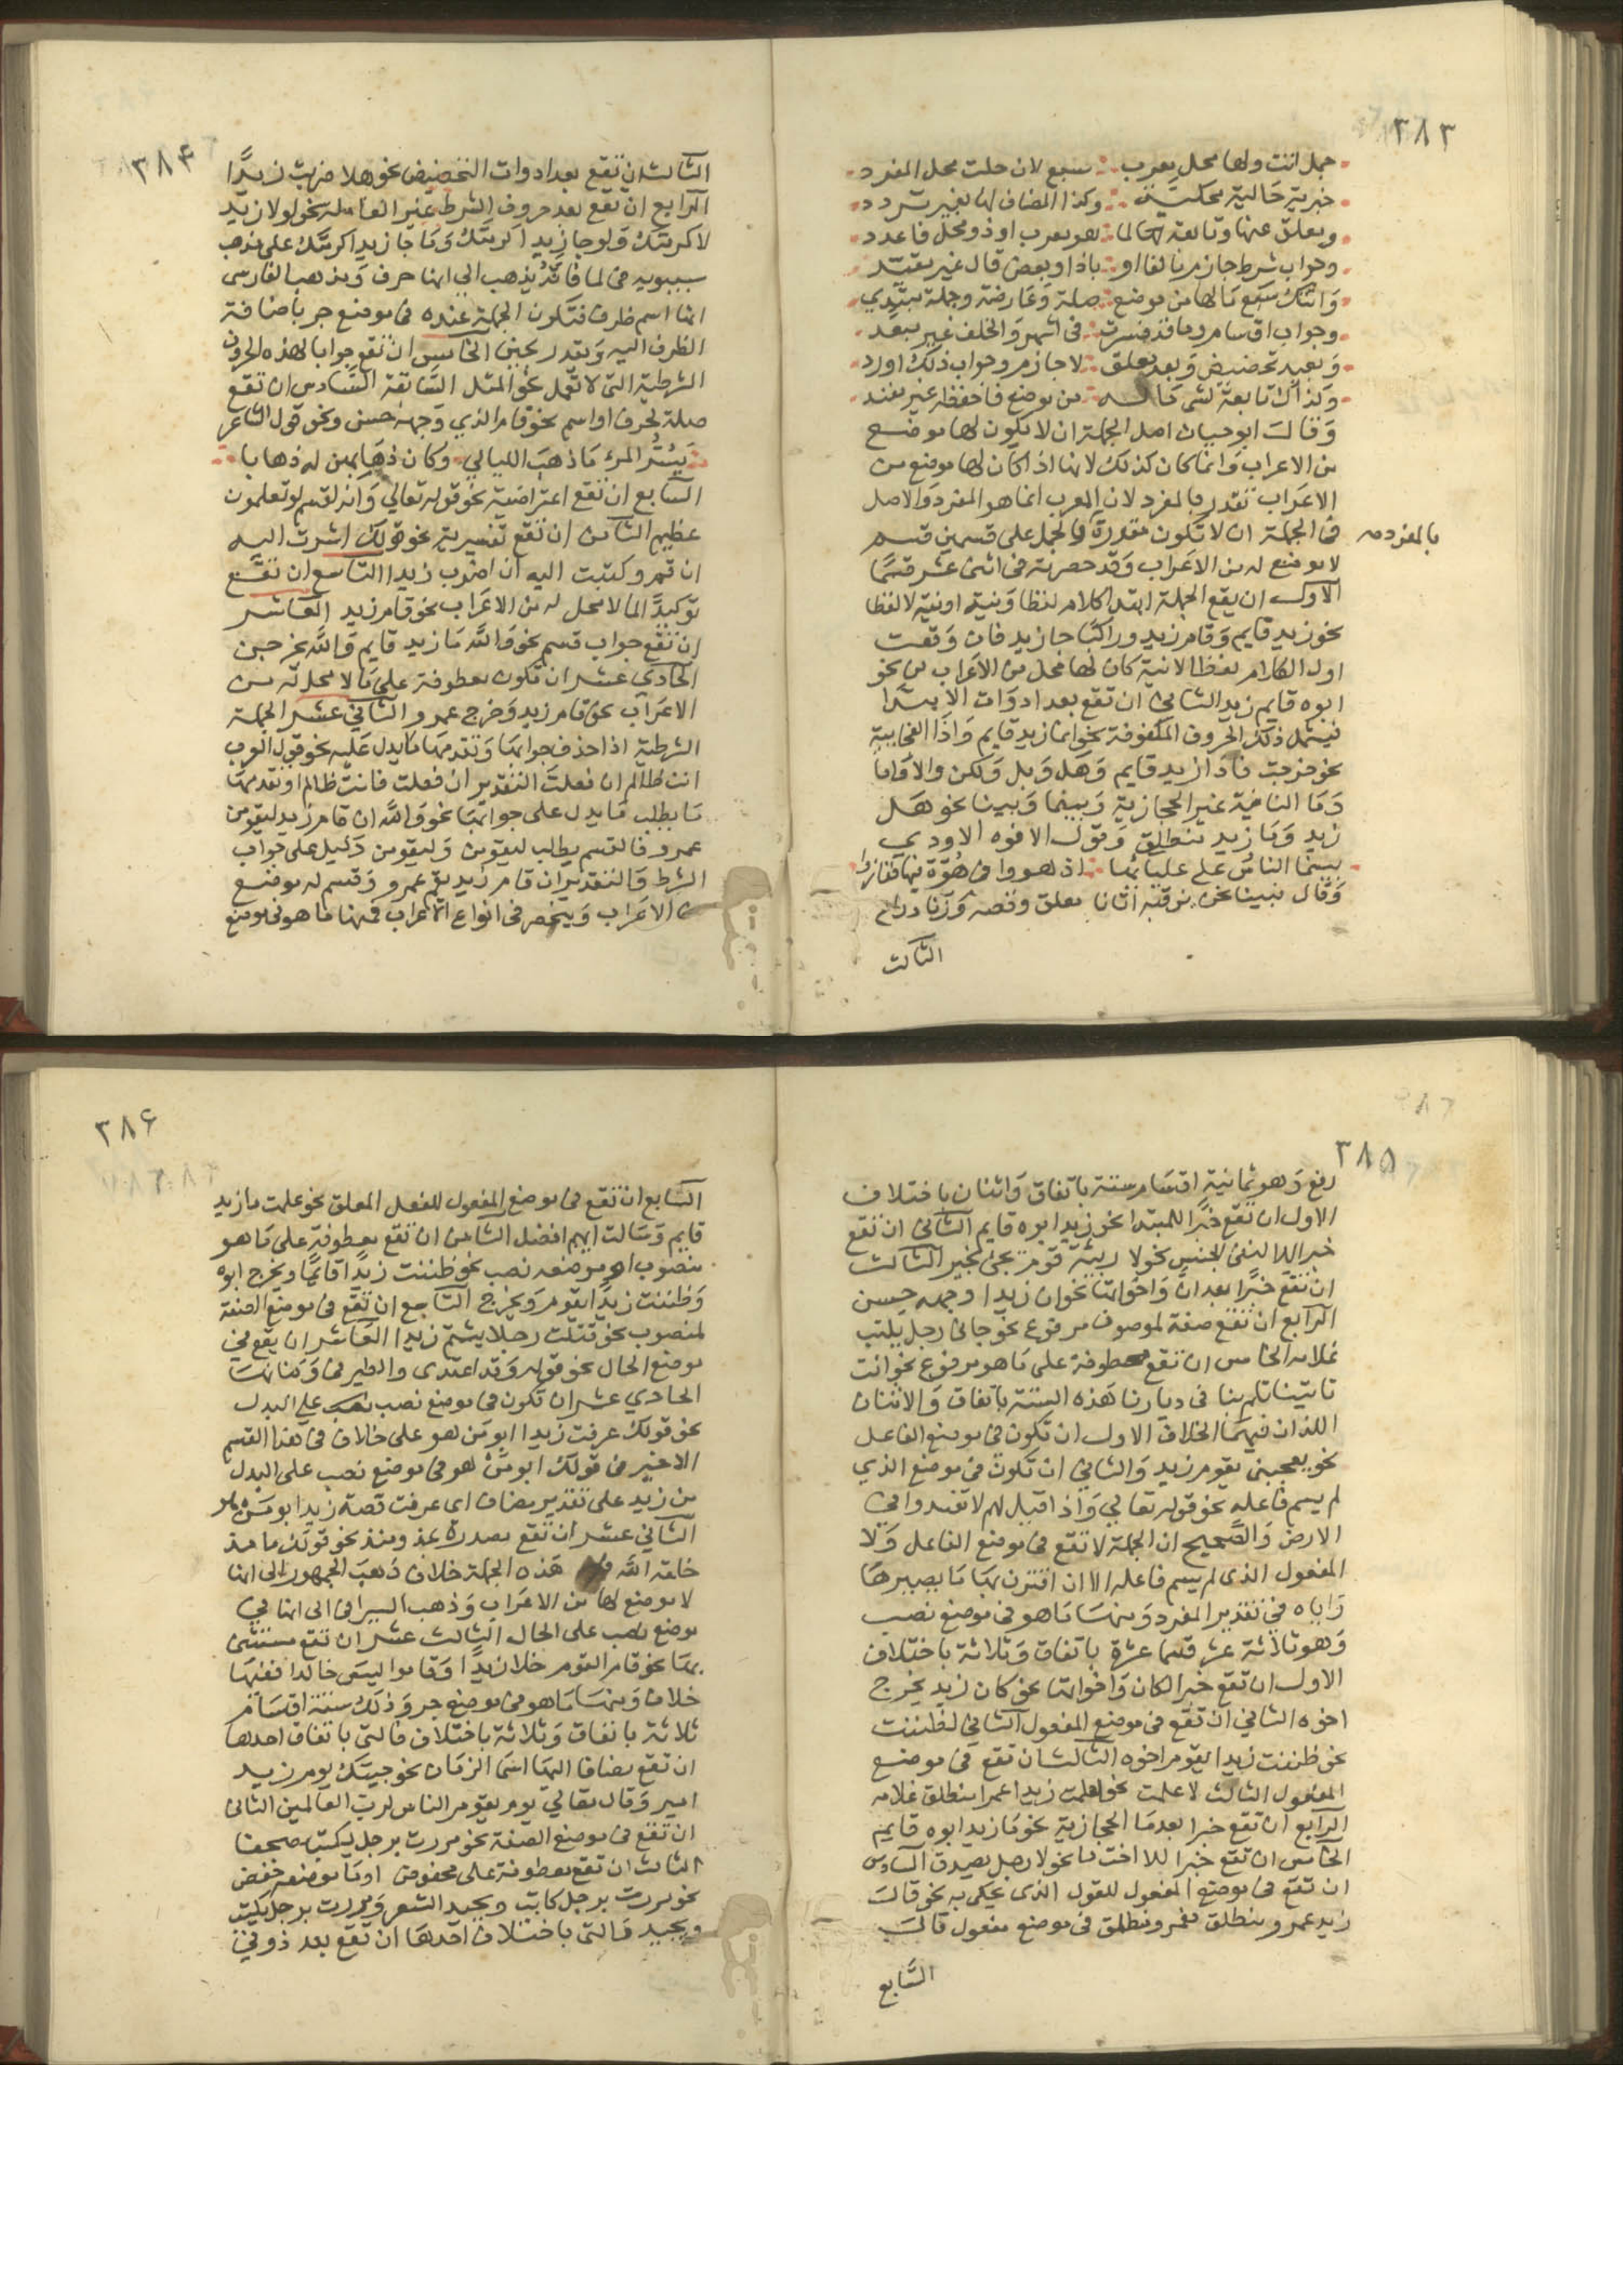 ٣٨٣
جمل اتت ولها محل يعرب سبع لان حلت محل المفرد
خبرية حالية محكية وكذا المضاف لها بغير تردد
ومعلق عنها وتابعة لما هو معرب او ذو محل فاعدد
وجواب شرط جازم بالفا او باذا وبعض قال غير مقيد
واتتك سبع ما لها من موضع صلة وعارضة وجملة مبتدي
وجواب اقسام وما قد فسرت في اشهر والخلف غير مبعد
وبعيد تحضيض وبعد معلق لا جازم وجواب ذلك اورد
وكذاك تابعة لشي ما له من موضع فاحفظه غير مفند
وقال ابو حيان اصل الجملة ان لا يكون لها موضع
من الاعراب وانما كان كذلك لانها اذا كان لها موضع من
الاعراب تقدر بالمفرد لان المعرب انما هو المفرد والاصل
في الجملة ان لا تكون مقدرة والجمل على قسمين قسم
بالمفرد صح
لا موضع له من الاعراب وقد حصرته في اثنى عشر قسما
الاول ان يقع الجملة ابتدا كلام لفظا ونية او نية لا لفظا
نحو زيد قايم وقام زيد وراكبا جا زيد فان وقعت
اول الكلام لفظا لا نية كان لها محل من الاعراب من نحو
ابوه قايم زيد الثاني ان تقع بعد ادوات الابتدا
فيشمل ذلك الحروف المكفوفة نحو انما زيد قايم واذا الفجاية
نحو خرجت فاذا زيد قايم وهل وبل ولكن والا واما
وما النافية غير الحجازية وبينما وبينا نحو هل
زيد وما زيد منطلق وقول الافوه الاودي
بينما الناس على عليائها اذ هووا في هوة فيها فغاروا
وقال فبينا نحن نرقبه اتانا معلق وفضة وزناد راع
الثالث
٣٨۴
الثالث ان تقع بعد ادوات التحضيض نحو هلا ضربت زيدا
الرابع ان تقع بعد حروف الشرط غير العاملة نحو لولا زيد
لاكرمتك ولو جا زيد اكرمتك ولما جا زيد اكرمتك على مذهب
سيبويه في لما فانه يذهب الى انها حرف ويذهب الفارسى
انها اسم ظرف فتكون الجملة عنده في موضع جر باضافة
الظرف اليه وتقدر بحين الخامس ان تقع جوابا لهذه الحروف
الشرطية التى لا تعمل نحو المثل السابقة السادس ان تقع
صلة لحرف او اسم نحو قام الذي وجهه حسن ونحو قول الشاعر
يسر المرء ما ذهب الليالي وكان ذهابهن له ذهابا
السابع ان تقع اعتراضية نحو قوله تعالي وانه لقسم لو تعلمون
عظيم الثامن ان تقع تفسيرية نحو قولك اشرت اليه
ان قم وكتبت اليه ان اضرب زيدا التاسع ان تقع
توكيدا لما لا محل له من الاعراب نحو قام زيد العاشر
ان تقع جواب قسم نحو والله ما زيد قايم والله ليخرجن
الحادي عشر ان تكون معطوفة على ما لا محل له من
الاعراب نحو قام زيد وخرج عمرو الثاني عشر الجملة
الشرطية اذا حذف جوابها وتقدمها ما يدل عليه نحو قول العرب
انت ظالم ان فعلت التقدير ان فعلت فانت ظالم او تقدمها
ما يطلب ما يدل على جوابها نحو والله ان قام زيد ليقومن
عمرو فالقسم يطلب ليقومن وليقومن دليل على جواب
الشرط والتقدير ان قام زيد يقم عمرو وقسم له موضع
من الاعراب وينحصر في انواع الاعراب فمنها ما هو في موضع
٣٨۵
رفع وهو ثمانية اقسام ستة باتفاق واثنان باختلاف
الاول ان تقع خبرا للمبتدا نحو زيد ابوه قايم الثاني ان تقع
خبر اللا لنفى الجنس نحو لا ربيئة قوم يجئ بخير الثالث
ان تقع خبرا بعد ان واخواتها نحو ان زيدا وجهه حسن
الرابع ان تقع صفة لموصوف مرفوع نحو جانى رجل يكتب
غلامه الخامس ان تقع معطوفة على ما هو مرفوع نحو انت
تاتينا تلم بنا في ديارنا هذه الستة باتفاق والاثنان
اللذان فيهما الخلاف الاول ان تكون في موضع الفاعل
نحو يعجبنى يقوم زيد والثاني ان تكون في موضع الذي
لم يسم فاعله نحو قوله تعالي واذا قيل لهم لا تفسدوا في
الارض والصحيح ان الجملة لا تقع في موضع الفاعل ولا
المفعول الذى لم يسم فاعله الا ان اقترن بها ما يصيرها
واياه في تقدير المفرد ومنها ما هو في موضع نصب
وهو ثلاثة عشر قسما عشرة باتفاق وثلاثة باختلاف
الاول ان تقع خبرا لكان واخواتها نحو كان زيد يخرج
اخوه الثاني ان تقع في موضع المفعول الثاني لظننت
نحو ظننت زيدا يقوم اخوه الثالث ان تقع في موضع
المفعول الثالث لاعلمت نحو اعلمت زيدا عمرا منطلق غلامه
الرابع ان تقع خبرا بعد ما الحجازية نحو ما زيد ابوه قايم
الخامس ان تقع خبرا للا اخت ما نحو لا رجل يصدق السادس
ان تقع في موضع المفعول للقول الذى يحكى به نحو قال
زيد عمرو منطلق فعمرو منطلق في موضع مفعول قال
السابع
٣٨۶
السابع ان تقع في موضع المفعول للفعل المعلق نحو علمت ما زيد
قايم وسالت ايهم افضل الثامن ان تقع معطوفة على ما هو
منصوب او موضعه نصب نحو ظننت زيدا قائما ويخرج ابوه
وظننت زيدا يقوم ويخرج التاسع ان تقع في موضع الصفة
لمنصوب نحو قتلت رجلا يشتم زيدا العاشر ان يقع في
موضع الحال نحو قوله وقد اغتدى والطير في وكناتها
الحادي عشر ان تكون في موضع نصب على البدل
نحو قولك عرفت زيدا ابو من هو على خلاف في هذا القسم
الاخير في قولك ابو من هو في موضع نصب على البدل
من زيد على تقدير مضاف اى عرفت قصة زيد ابو من هو
الثاني عشر ان تقع مصدرة بمذ ومنذ نحو قولك ما مذ
خلقه الله هذه الجملة خلاف ذهب الجمهور الى انها
لا موضع لها من الاعراب وذهب السيرافى الى انها في
موضع نصب على الحال الثالث عشر ان تقع مستثنى
بها نحو قام القوم خلا زيدا وقاموا ليس خالدا ففيها
خلاف ومنها ما هو في موضع جر وذلك ستة اقسام
ثلاثة باتفاق وثلاثة باختلاف فالتى باتفاق احدها
ان تقع مضافا اليها اسما الزمان نحو جيتك يوم زيد
امير وقال تعالي يوم يقوم الناس لرب العالمين الثانى
ان تقع في موضع الصفة نحو مررت برجل يكتب مصحفا
الثالث ان تقع معطوفة على مخفوض او ما موضعه خفض
نحو مررت برجل كاتب ويجيد الشعر ومررت برجل يكتب
ويجيد فالتى باختلاف احدها ان تقع بعد ذو في